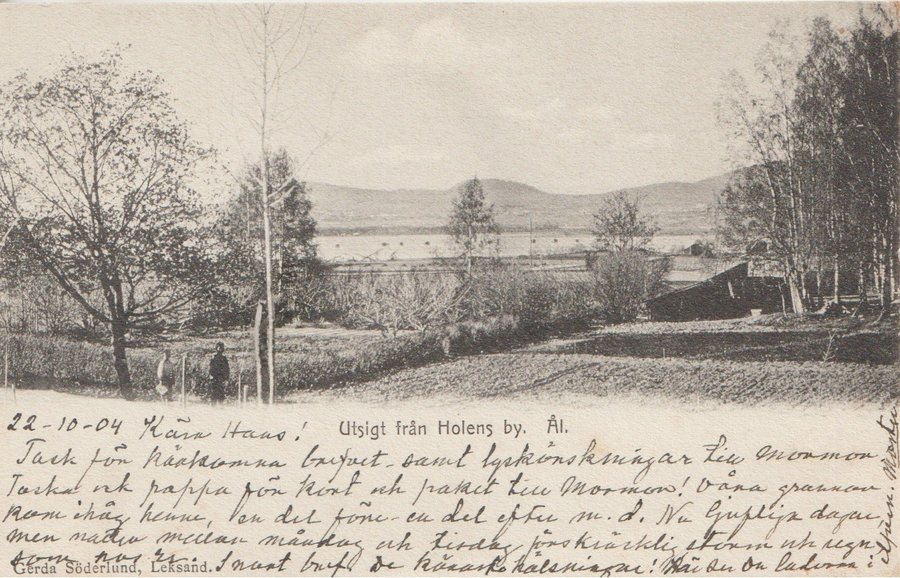 22-10-04 Kära Hans!
Utsigt från Holens by. Ål.
Tack för kärkomna brefvet - samt lyckönskningar till Mormor.
Tacka ock pappa för kort och paket till Mormor! Våra grannar
kom ihåg henne, en del före - en del efter m. d. Nu ljufliga dagar
men natten mellan måndag och tisdag förskräcklig storm och regn
som
Snart bref. De käraste hälsningar! Har Du luderna i
Gerda Söderlund, Leksand.
Moster